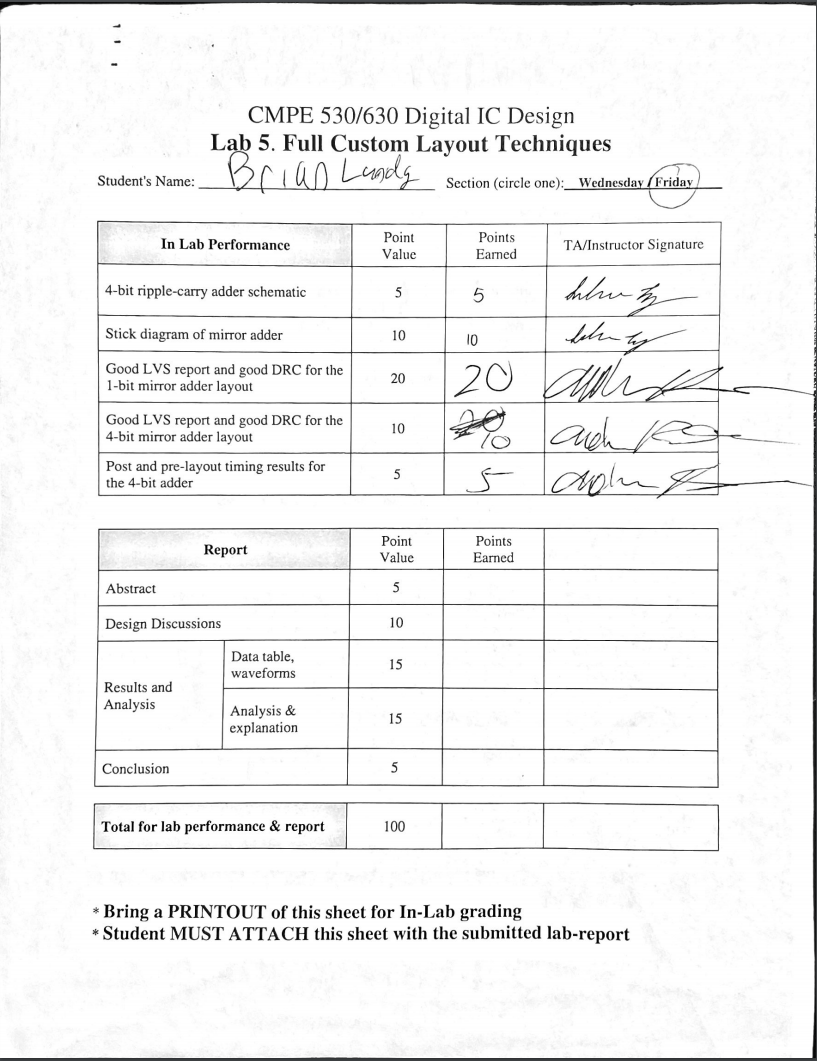 CMPE 530/630 Digital IC Design
Lab 5. Full Custom Layout Techniques
Student's Name: Brian Section (circle one): Wednesday / Friday
In Lab Performance Point Value Points Earned TA/Instructor Signature
4-bit ripple-carry adder schematic 5 5
Stick diagram of mirror adder 10 10
Good LVS report and good DRC for the
1-bit mirror adder layout 20 20
Good LVS report and good DRC for the
4-bit mirror adder layout 10 10
Post and pre-layout timing results for
the 4-bit adder 5 5
Report Point Value Points Earned
Abstract 5
Design Discussions 10
Results and Analysis
Data table,
waveforms 15
Analysis &
explanation 15
Conclusion 5
Total for lab performance & report 100
* Bring a PRINTOUT of this sheet for In-Lab grading
* Student MUST ATTACH this sheet with the submitted lab-report